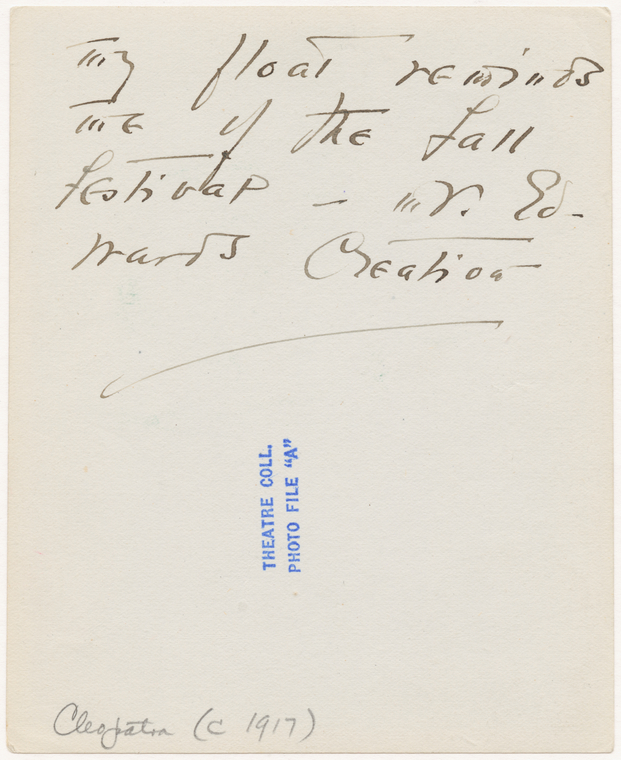 my float reminds
me of the Fall
Festival – Mr. Ed-
wards Creation
THEATRE COLL.
PHOTO FILE "A"
Cleopatra (c 1917)